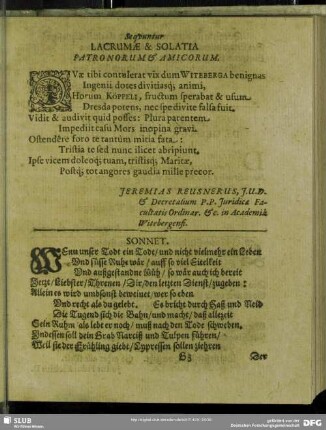 Sequuntur
LACRUMÆ & SOLATIA
PATRONORUM & AMICORUM.
QVæ tibi contulerat vix dum WITEBERGA benignas
Ingenii dotes divitiasq; animi,
Horum KÖPPELI, fructum sperabat & usum
Dresda potens, nec spe divite falsa fuit.
Vidit & audivit quid posses: Plura parentem
Impediit casu Mors inopina gravi.
Ostendêre foro te tantùm mitia fata:
Tristia te sed nunc ilicet abripiunt.
Ipse vicem doleoq; tuam, tristisq; Maritæ,
Postq; tot angores gaudia mille precor.
JEREMIAS REUSNERUS, J.U.D.
& Decretalium P.P. Juridicæ Fa-
cultatis Ordinar. &c. in Academiâ
Witebergensi.
SONNET.
WEnn unser Todt ein Todt/ und nicht vielmehr ein Leben
Und süsse Ruhe wär/ auff so viel Eitelkeit
Und außgestandne Müh/ so wär auch ich bereit
Jetzt/ Liebster/ Threnen/ Dir/ den letzten Dienst/ zugeben:
Allein es wird umbsonst beweinet/ wer so eben
Und recht als du gelebt. Es bricht durch Haß und Neid
Die Tugend sich die Bahn/ und macht/ daß allezeit
Sein Ruhm/ als lebt er noch/ muß nach den Tode schweben.
Undessen soll dein Grab Narciß und Tulpen führen/
Weil sie der Frühling giebt/ Cypressen sollen ziehren
Der
SLUB
Wir führen Wissen.
gefördert von der
Deutschen Forschungsgemeinschaft
DFG